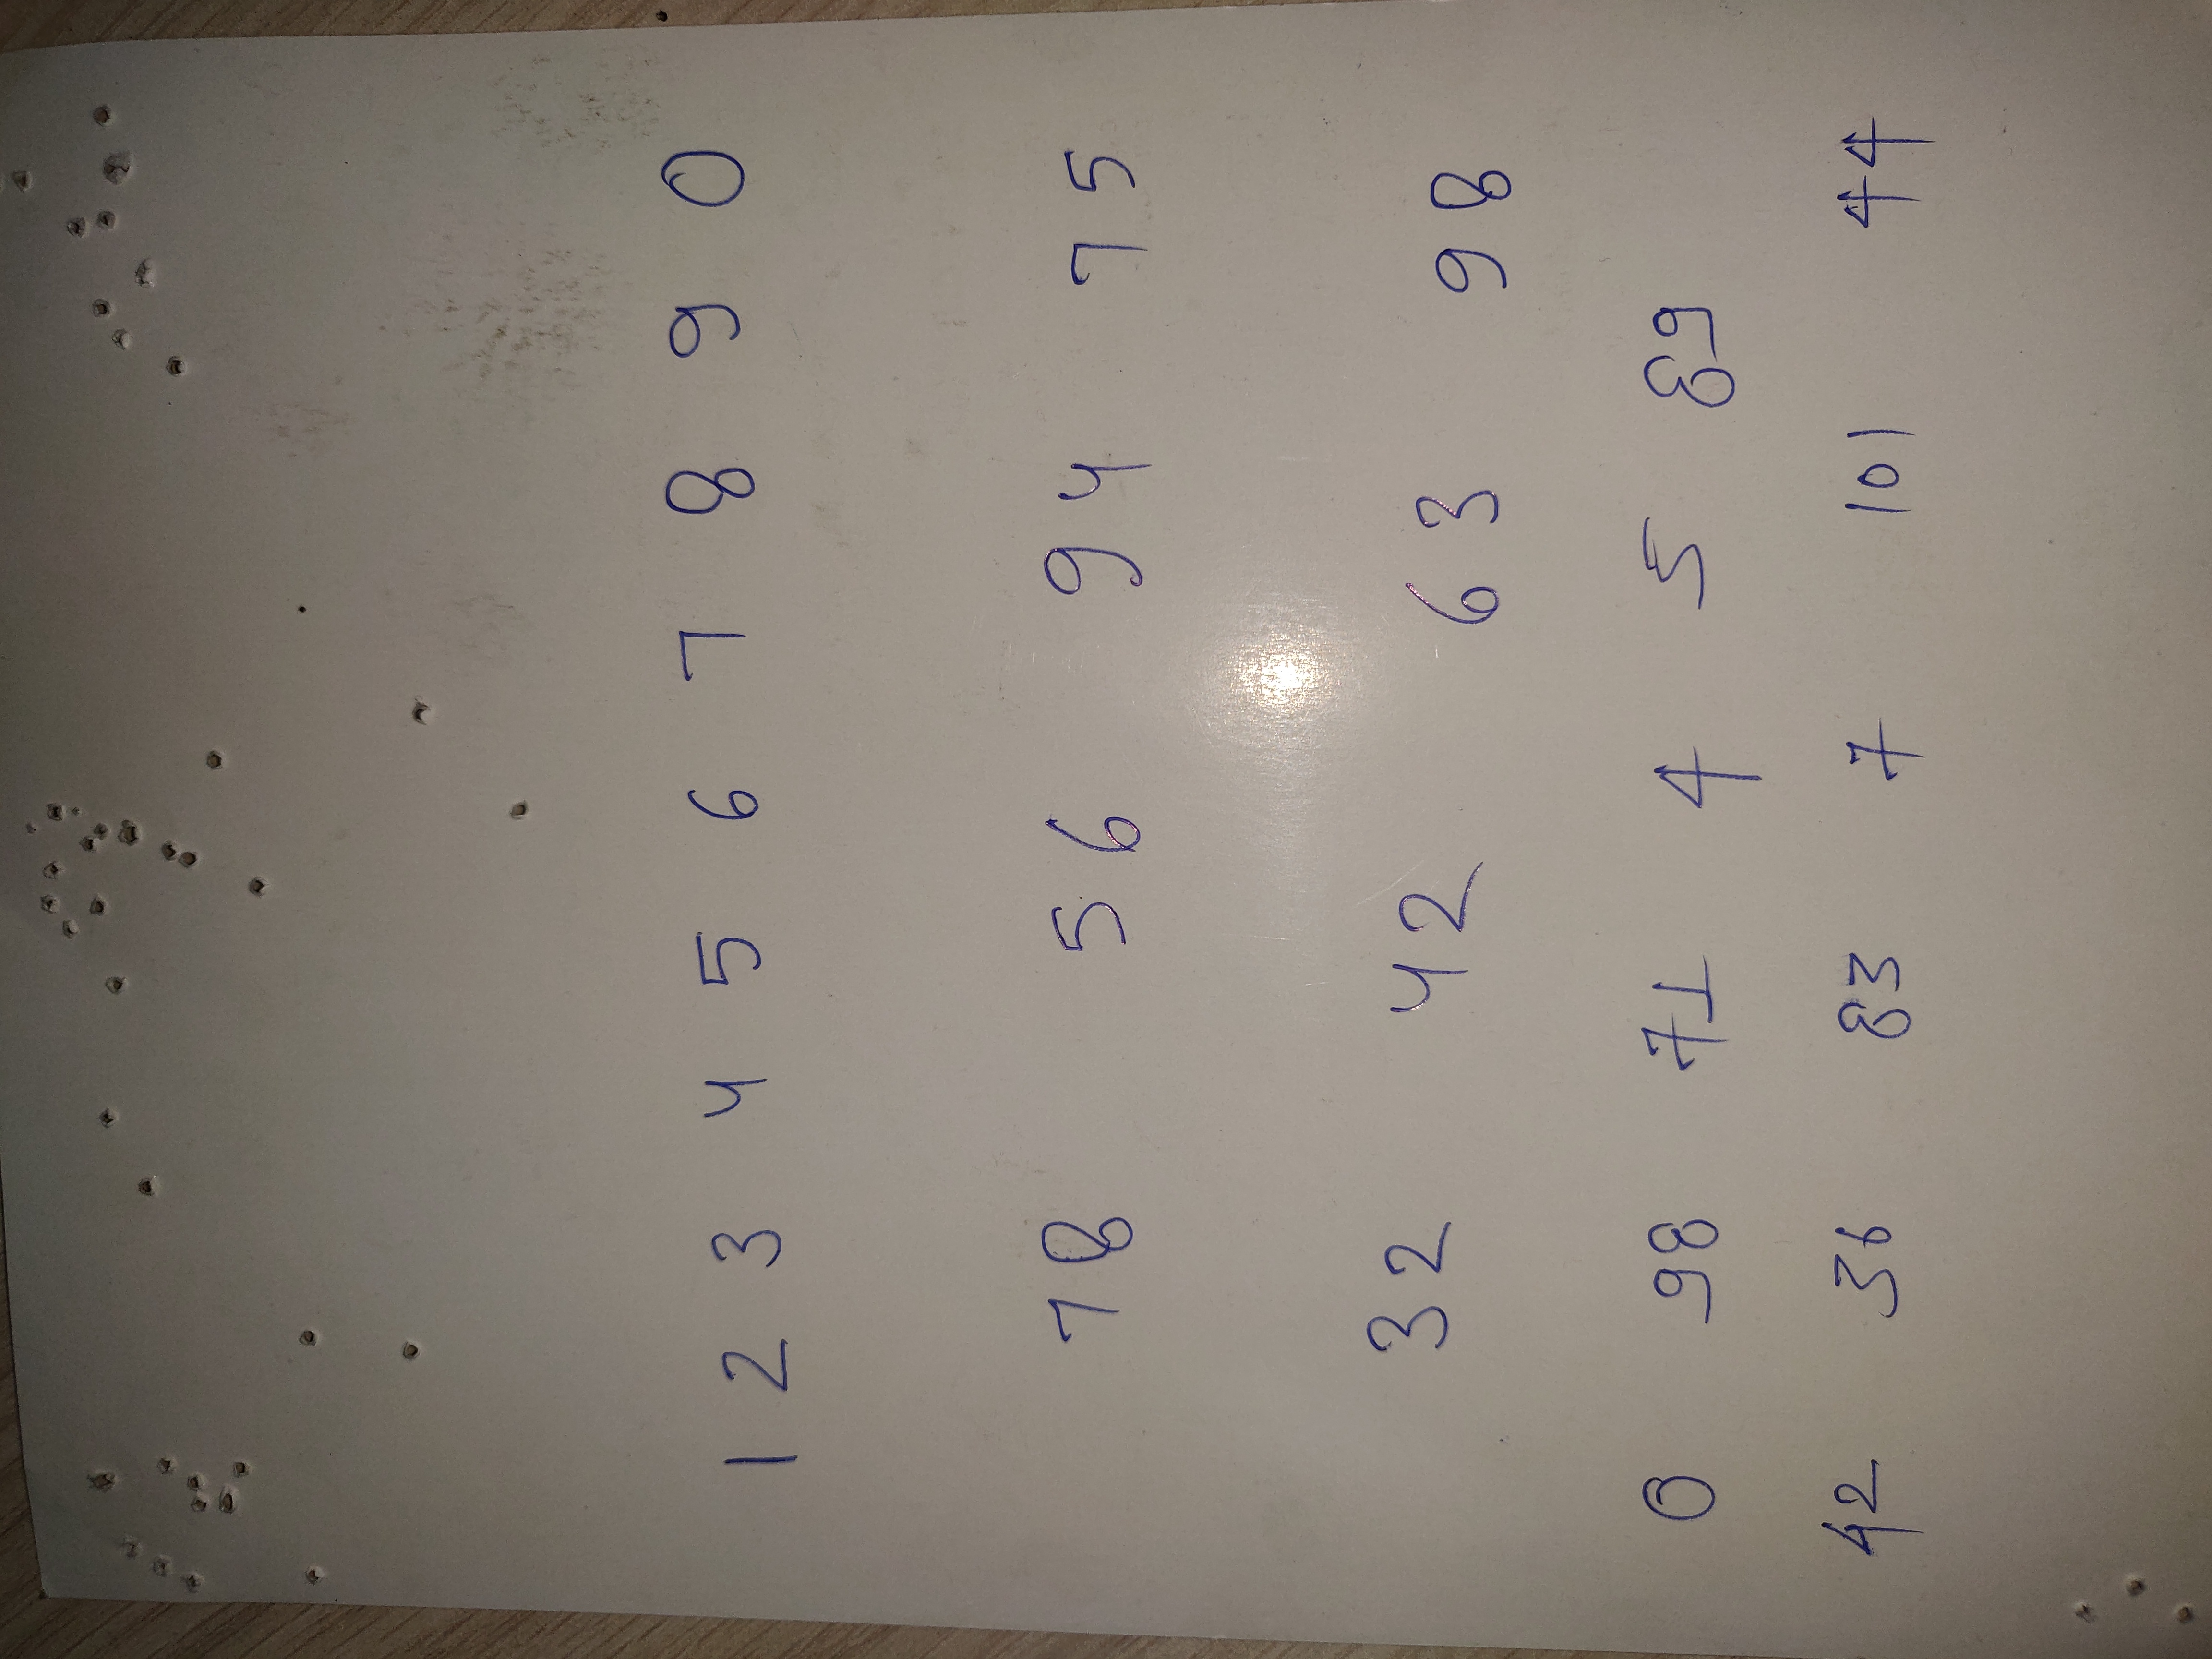 1 2 3 4 5 6 7 8 9 0
78 56 94 75
32 42 63 98
0 98 71 4 5 89
42 36 83 7 101 44